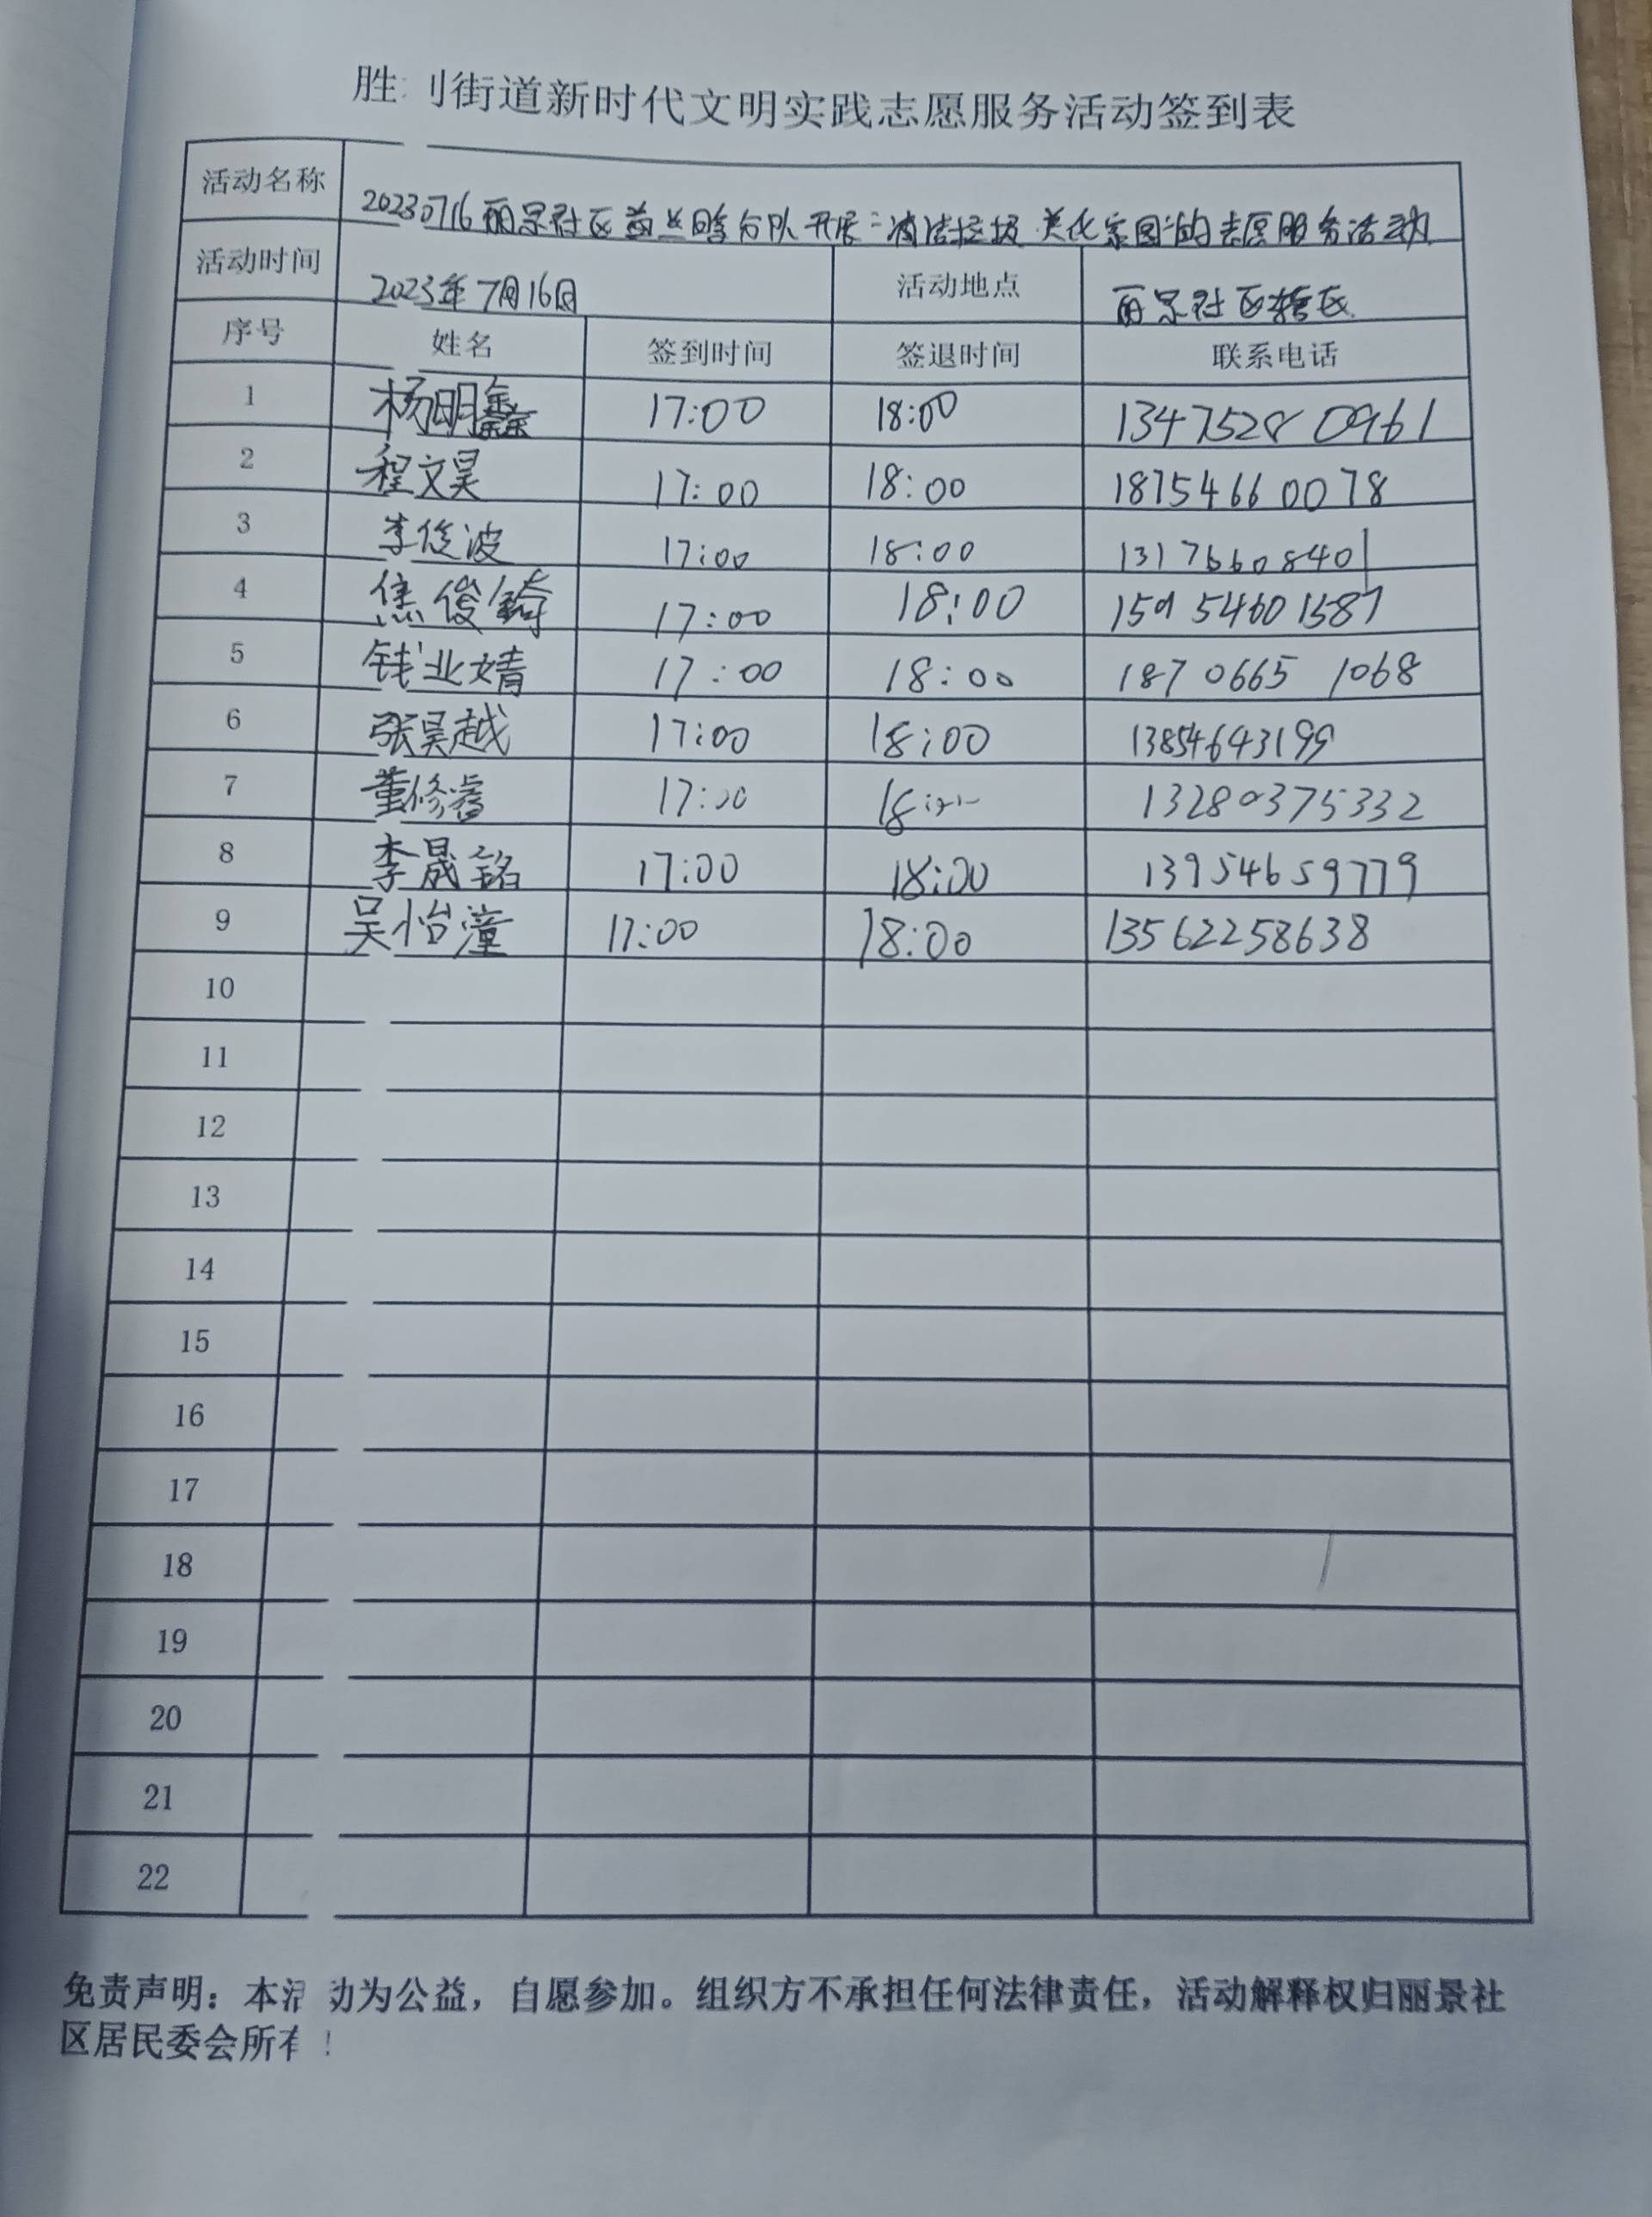 胜利街道新时代文明实践志愿服务活动签到表
活动名称 20230716丽景社区 分队开展"清洁垃圾 美化家园"的志愿服务活动
活动时间 2023年7月16日 活动地点 丽景社区辖区
序号 姓名 签到时间 签退时间 联系电话
1 杨明鑫 17:00 18:00 13475280961
2 程文昊 17:00 18:00 18754660078
3 李俊波 17:00 18:00 13176608401
4 焦俊錡 17:00 18:00 15954601587
5 钱业婧 17:00 18:00 187 0665 1068
6 张昊越 17:00 18:00 13854643199
7 董修睿 17:00 18:00 13280375332
8 李晟铭 17:00 18:00 13954659779
9 吴怡潼 17:00 18:00 13562258638
10
11
12
13
14
15
16
17
18
19
20
21
22
免责声明：本活动为公益，自愿参加。组织方不承担任何法律责任，活动解释权归丽景社
区居民委会所有！